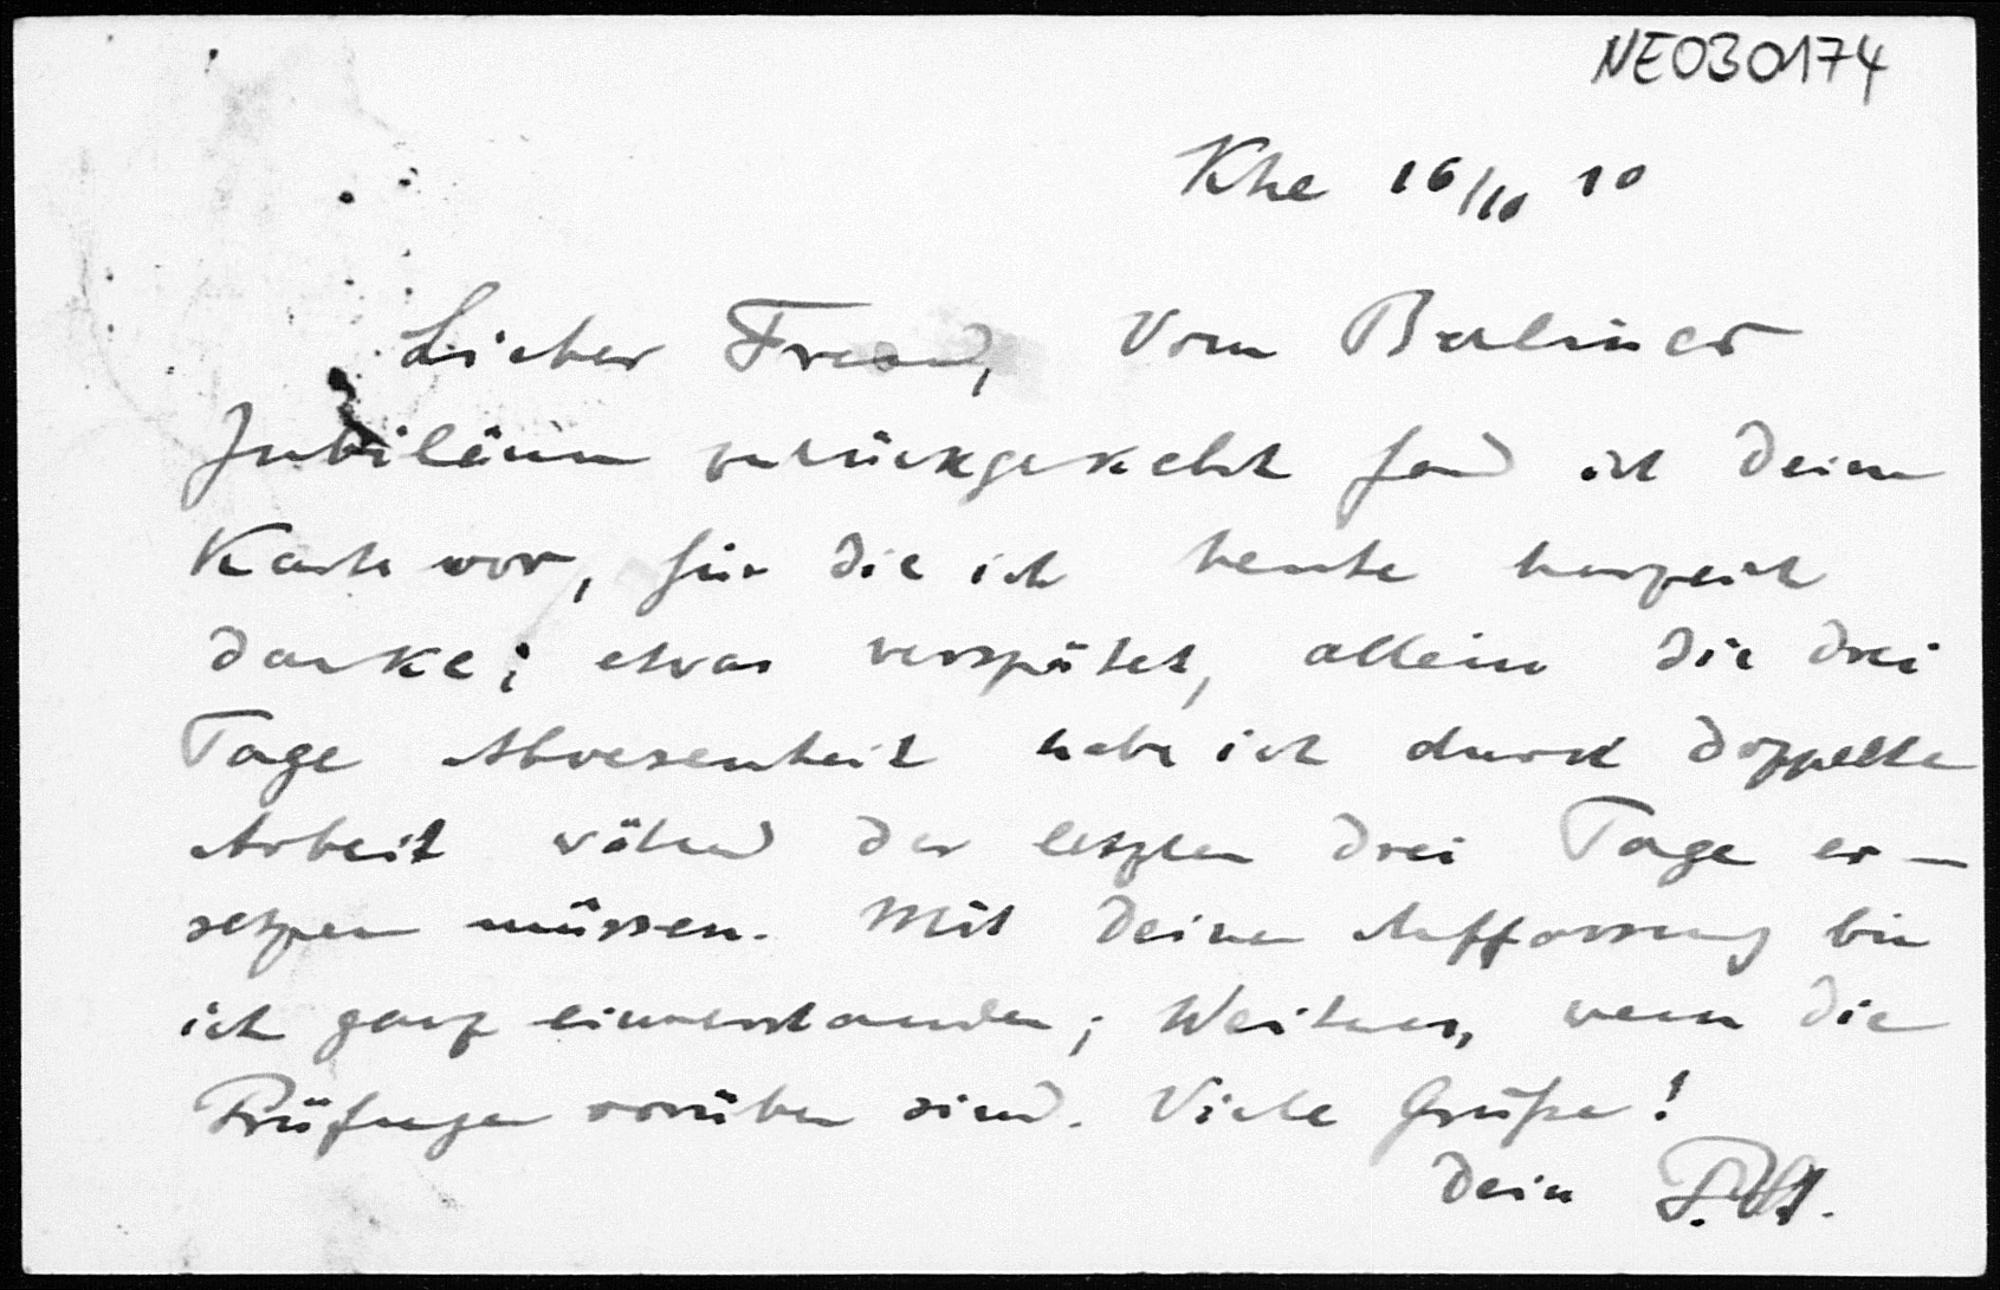 NE030174
Khe 16/10 10
Lieber Freund, Vom Berliner
Jubiläum zurückgekehrt fand ich Deine
Karte vor, für die ich heute herzlich
danke; etwas verspätet, allein die drei
Tage Abwesenheit habe ich durch doppelte
Arbeit während der letzten drei Tage er-
setzen müssen. Mit Deiner Auffassung bin
ich ganz einverstanden; Weiteres, wenn die
Prüfungen vorüber sind. Viele Grüße!
Dein P. St.